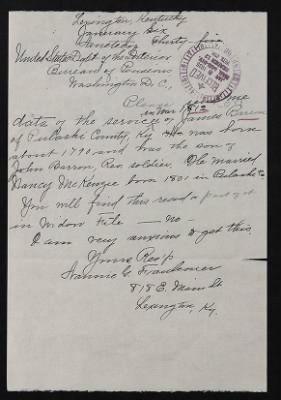 Lexington, Kentucky
January Six
Nineteen Thirty-five
United States Dept of the Interior
Bureau of Pensions
Washington D.C.,
Please give me
in War 1812
date of the service of James Barron
of Pulaski County, Ky. He was born
about 1791 and was the son of
John Barron, Rev. soldier. He married
Nancy McKenzie born 1801 in Pulaski Co
You will find this record a part of it
in Widow File — no —
I am very anxious to get this
Yours Resp
Nannie G.
818 E. Main St
Lexington, Ky.